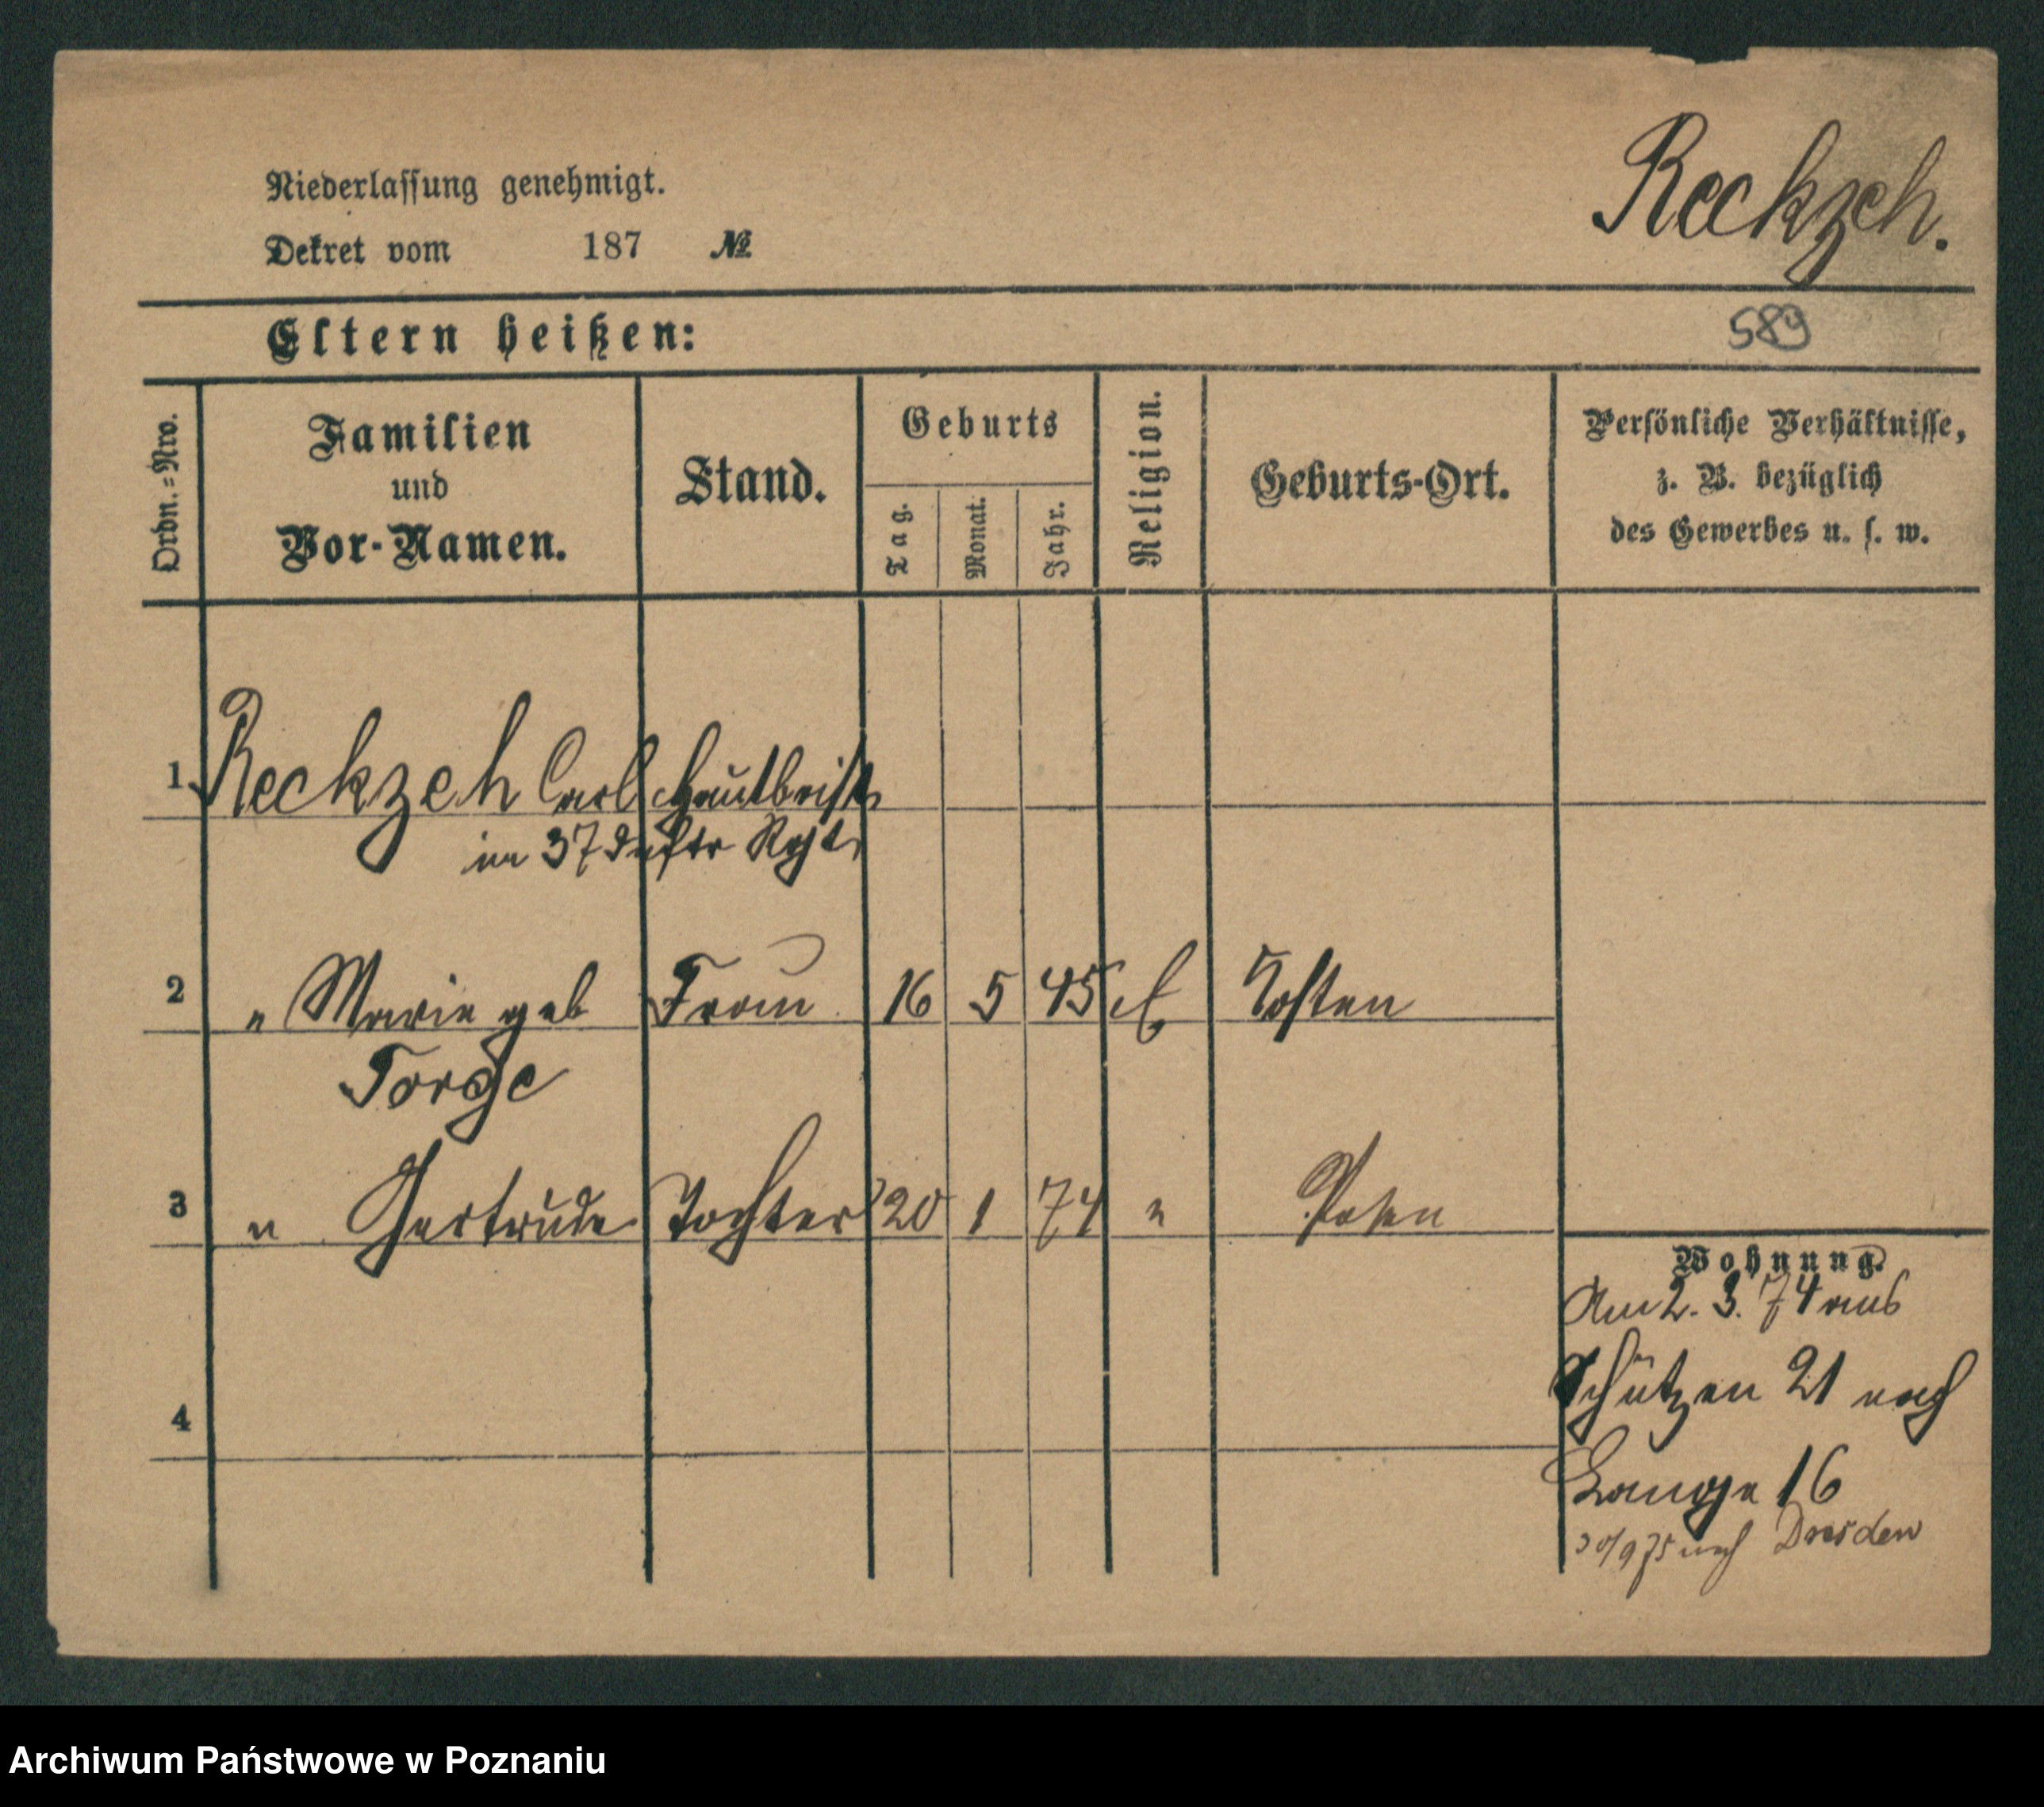 Niederlassung genehmigt.
Reckzeh.
Dekret vom 187 №
Eltern heißen:
589
Ordn.=Nro.
Familien
und
Vor-Namen.
Stand.
Geburts
Tag.
Monat.
Jahr.
Religion.
Geburts-Ort.
Persönliche Verhältnisse,
z. B. bezüglich
des Gewerbes u. s. w.
1 Reckzeh Carl Hautboist
im 37 Inftr Rgt.
2 " Marie geb Frau 16 5 45
Torge
3 " Gertrude Tochter 20 1 74 " Posen
4
Wohnung.
Am 2. 3. 74 aus
Schützen 21 nach
Lange 16
30/9 75 nach Dresden
Archiwum Państwowe w Poznaniu